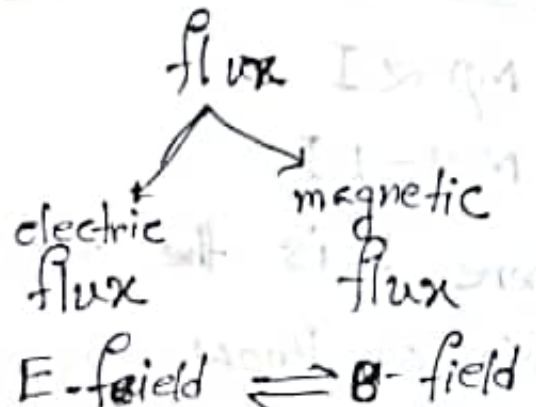 flux
electric magnetic
flux flux
E-field ⇌ B-field